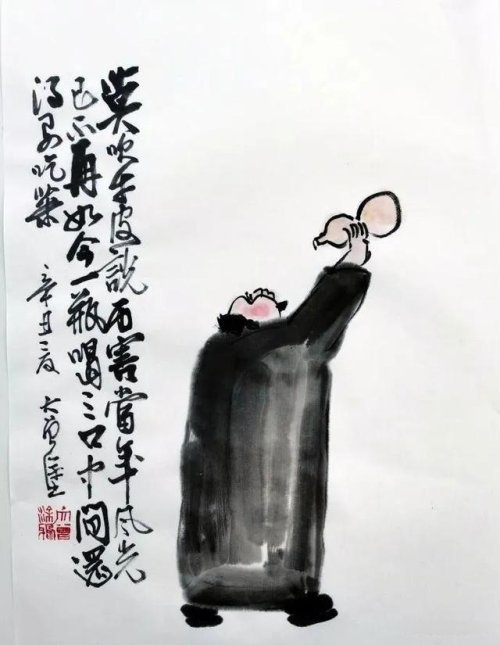 莫吹牛皮說厉害當年風光
已不再如今一瓶喝三口中間還
得另吃菜
辛丑 大